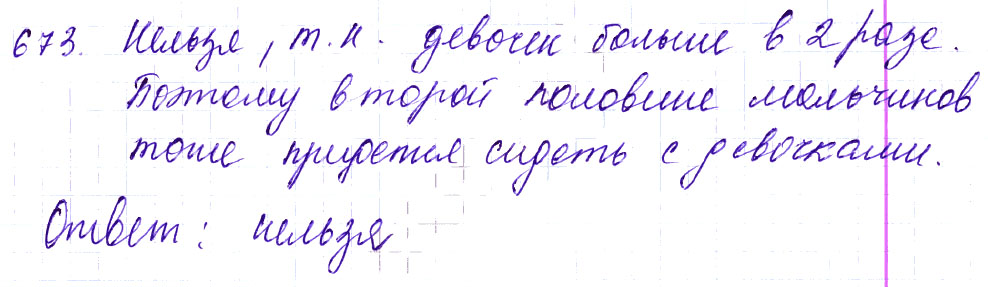 673. Нельзя, т.к. девочек больше в 2 раза.
Поэтому второй половине мальчиков
тоже придется сидеть с девочками.
Ответ: нельзя